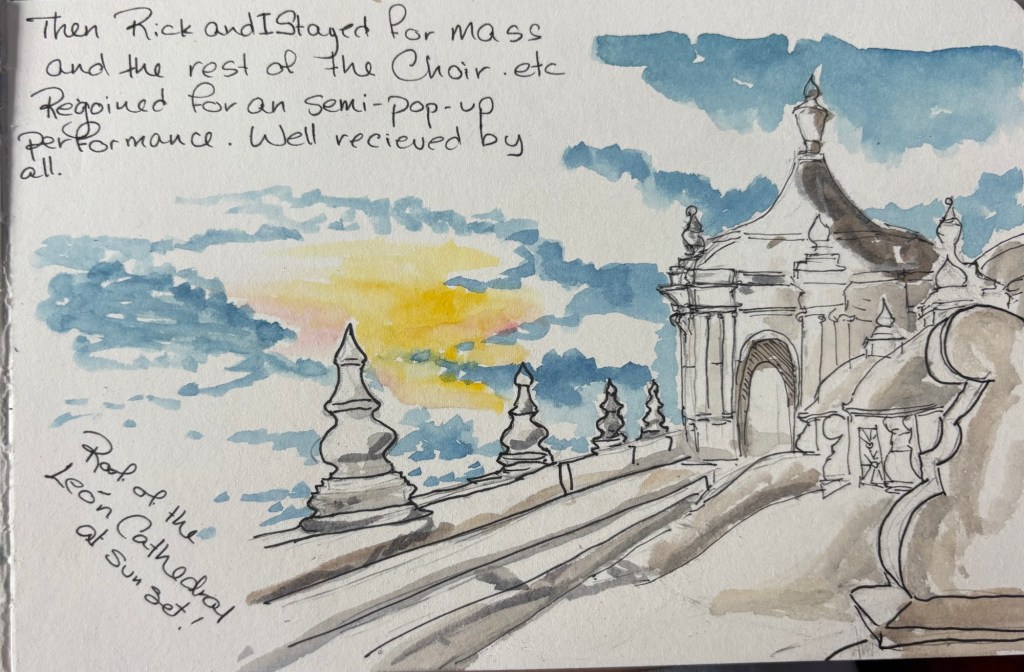 Then Rick and I Stayed for mass
and the rest of the Choir. etc
Regoined for an semi-pop-up
performance. Well recieved by
all.
Roof of the
León Cathedral
at sun set!